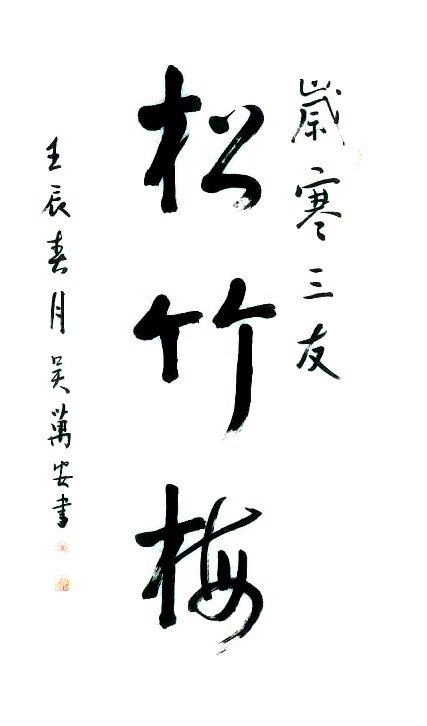 歲寒三友
松竹梅
壬辰春月吴萬安書